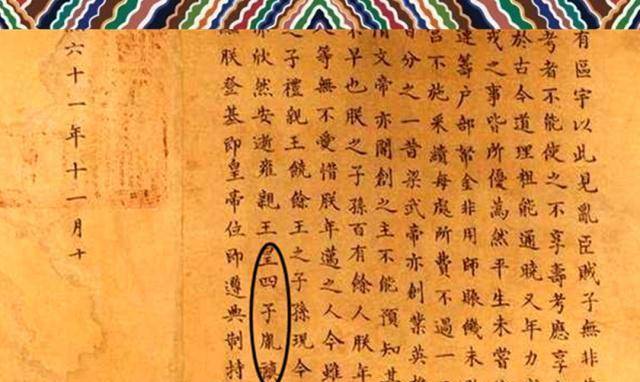 有區宇以此見亂臣賊子無非
考者不能使之不享壽考應享
於古今道理粗能通曉又年力
戎之事皆所優為然平生未嘗
運籌戶部帑金非用師賑饑未
宮不施采繢每處所費不過一
百分之一昔梁武帝亦創業英
隋文帝亦開創之主不能預知其
不早也朕之子孫百有餘人朕年
人等無不愛惜朕年邁之人今雖
之子禮親王饒餘王之子孫現今
亦欣然安逝雍親王皇四子胤禛
朕登基即皇帝位即遵典制持
六十一年十一月十